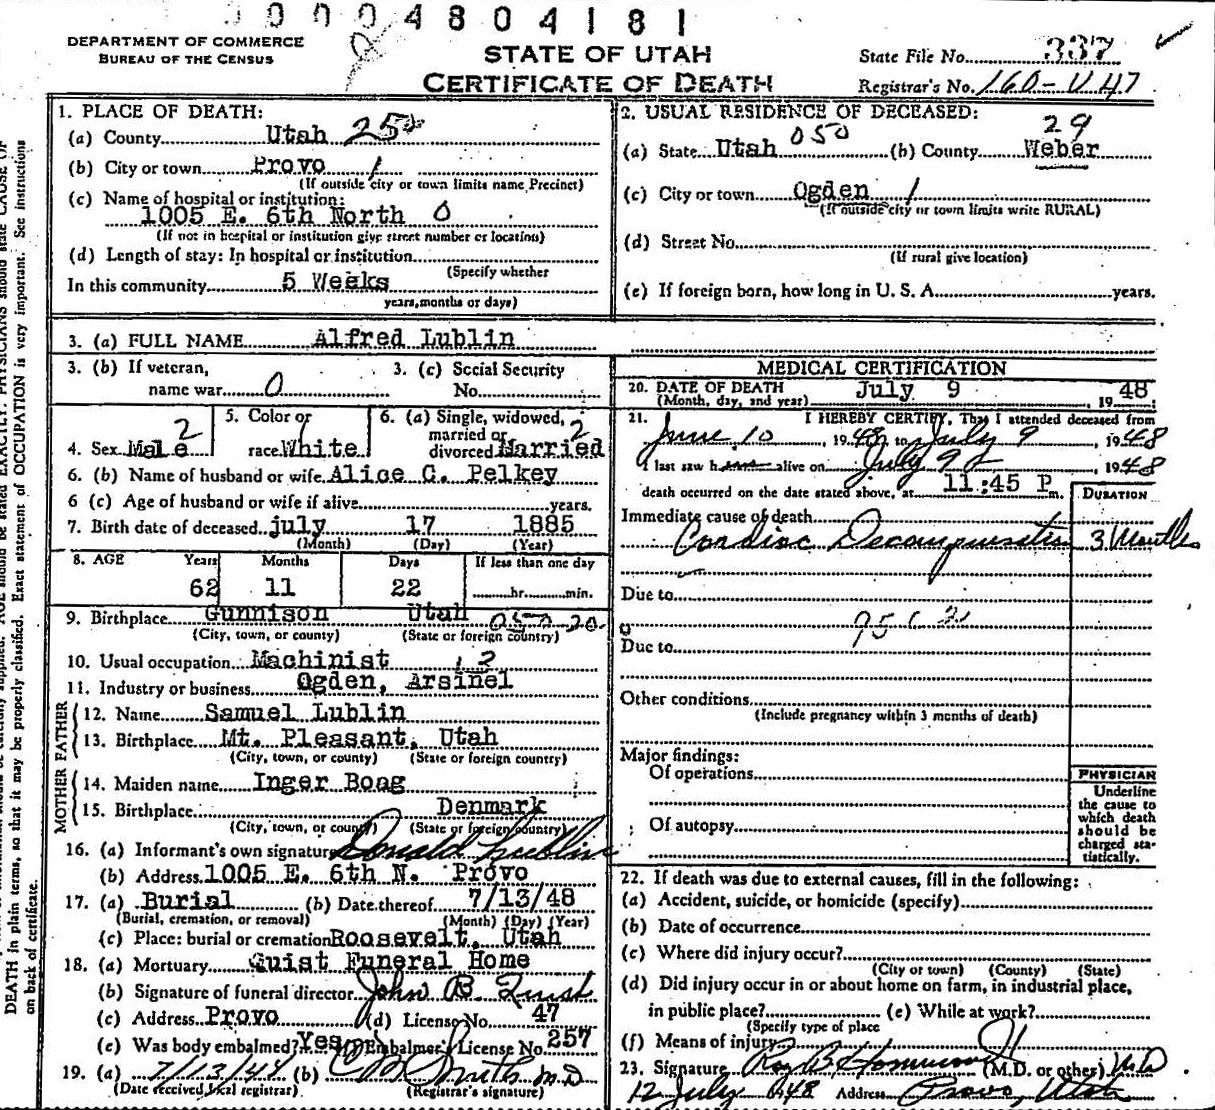 00004804181
DEPARTMENT OF COMMERCE
BUREAU OF THE CENSUS
STATE OF UTAH
CERTIFICATE OF DEATH
State File No. 337
Registrar's No. 160-U47
1. PLACE OF DEATH:
(a) County Utah 250
(b) City or town Provo 1
(If outside city or town limits name Precinct)
(c) Name of hospital or institution:
1005 E. 6th North 0
(If not in hospital or institution give street number or location)
(d) Length of stay: In hospital or institution
(Specify whether
In this community 5 Weeks
years, months or days)
2. USUAL RESIDENCE OF DECEASED:
29
(a) State Utah 050 (b) County Weber
(c) City or town Ogden 1
(If outside city or town limits write RURAL)
(d) Street No.
(If rural give location)
(e) If foreign born, how long in U. S. A. years.
3. (a) FULL NAME Alfred Lublin
3. (b) If veteran,
name war 0
3. (c) Social Security
No.
4. Sex Male 2
5. Color or
race White
6. (a) Single, widowed, 2
married or
divorced Married
6. (b) Name of husband or wife Alice C. Pelkey
6 (c) Age of husband or wife if alive years.
7. Birth date of deceased july 17 1885
(Month) (Day) (Year)
8. AGE Years Months Days If less than one day
62 11 22 hr. min.
9. Birthplace Gunnison Utah
(City, town, or county) (State or foreign country)
10. Usual occupation Machinist
11. Industry or business Ogden, Arsinel
FATHER
12. Name Samuel Lublin
13. Birthplace Mt. Pleasant, Utah
(City, town, or county) (State or foreign country)
MOTHER
14. Maiden name Inger Boag
15. Birthplace Denmark
(City, town, or county) (State or foreign country)
16. (a) Informant's own signature Donald Lublin
(b) Address 1005 E. 6th N. Provo
17. (a) Burial (b) Date thereof 7/13/48
(Burial, cremation, or removal) (Month) (Day) (Year)
(c) Place: burial or cremation Roosevelt, Utah
18. (a) Mortuary Guist Funeral Home
(b) Signature of funeral director John B.
(c) Address Provo (d) License No. 47
(e) Was body embalmed? Yes Embalmer's License No. 257
19. (a) 7/13/48 (b) Smith M D
(Date received local registrar) (Registrar's signature)
MEDICAL CERTIFICATION
20. DATE OF DEATH July 9
(Month, day, and year) 1948
21. I HEREBY CERTIFY, That I attended deceased from
June 10, 1948 to July 9 1948
I last saw him alive on July 9 1948
death occurred on the date stated above, at 11:45 P m.
DURATION
Immediate cause of death
Cardiac Decompensation 3 Months
Due to
Due to
Other conditions
(Include pregnancy within 3 months of death)
Major findings:
Of operations
Of autopsy
PHYSICIAN
Underline
the cause to
which death
should be
charged sta-
tistically.
22. If death was due to external causes, fill in the following:
(a) Accident, suicide, or homicide (specify)
(b) Date of occurrence
(c) Where did injury occur?
(City or town) (County) (State)
(d) Did injury occur in or about home on farm, in industrial place,
in public place? (e) While at work?
(Specify type of place
(f) Means of injury
23. Signature Roy B Hammond (M.D. or other) M D
12 July 1948 Address Provo, Utah
DEATH in plain terms, so that it may be properly classified. Exact statement of OCCUPATION is very important. See instructions
on back of certificate.